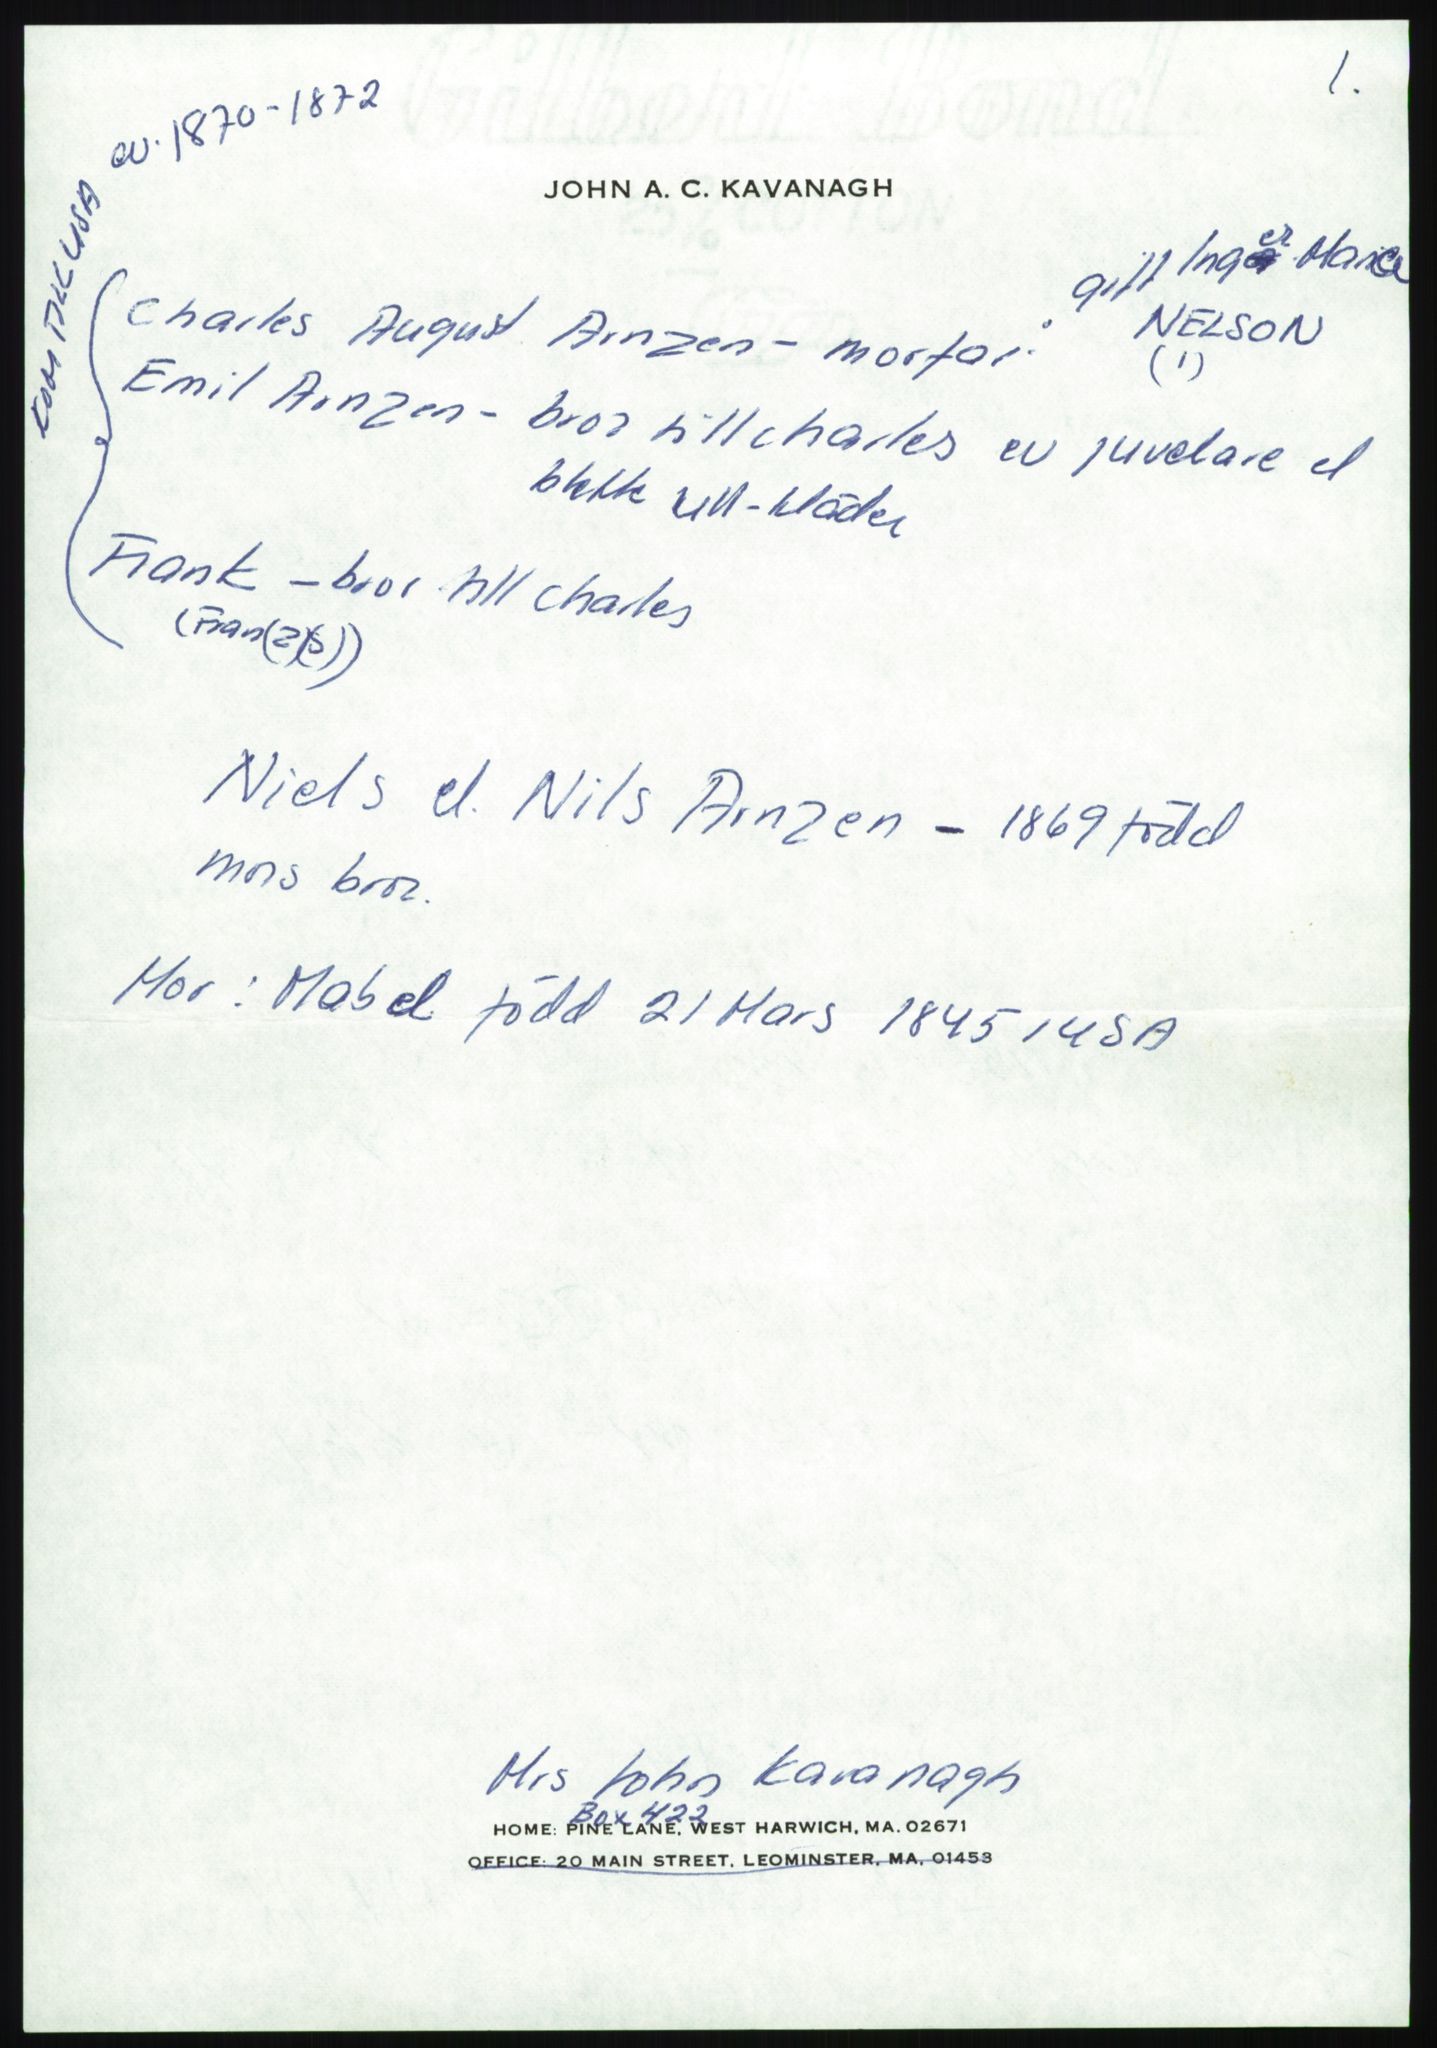 1.
ev. 1870-1872
KOM TILL USA
JOHN A. C. KAVANAGH
gift Inger Marie
NELSON
(1)
Charles August Arnzen - morfar.
Emil Arnzen - bror till Charles ev juvelare el
butik ull-kläder
Frank - bror till Charles
(Fran(z)(s))
Niels el. Nils Arnzen - 1869 född
mors bror.
Mor: Mabel född 21 Mars 1845 i USA
Mrs John Kavanagh
Box 422
HOME: PINE LANE, WEST HARWICH, MA. 02671
OFFICE: 20 MAIN STREET, LEOMINSTER, MA. 01453